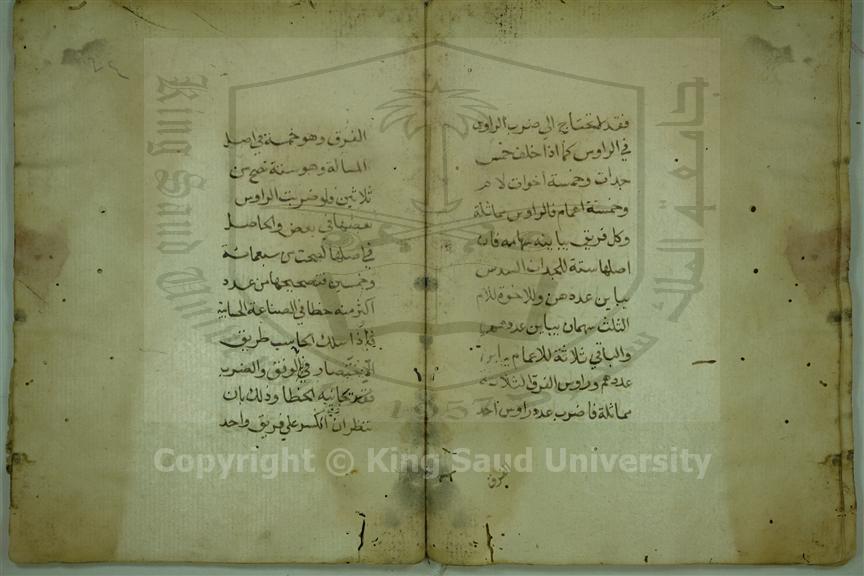 فقد لا تحتاج الى ضرب الراوس
في الراوس كما اذا خلف خمس
جدات وخمسة اخوات لام
وخمسة اعمام فالراوس مماثلة
وكل فريق يباينه سهامه فان
اصلها ستة للجدات السدس
يباين عددهن وللاخوة للام
الثلث سهمان يباين عددهم
والباقي ثلاثة للاعمام يباين
عددهم وراوس الفرق الثلاثة
مماثلة فاضرب عدد راوس احد
الفرق
٢٤
الفرق وهو خمسة في اصل
المسالة وهو ستة تصح من
ثلاثين فلو ضربت الراوس
بعضها في بعض والحاصل
في اصلها لصحت من سبعمائة
وخمسين فتصحيحها من عدد
اكثر منه خطا في الصناعة الحسابية
فاذا سلك الحاسب طريق
الاختصار في الوفق والضرب
فقد يجانبه الخطا وذلك بان
تنظر ان الكسر علي فريق واحد
King Saud University
جامعة الملك سعود
1957
Copyright © King Saud University